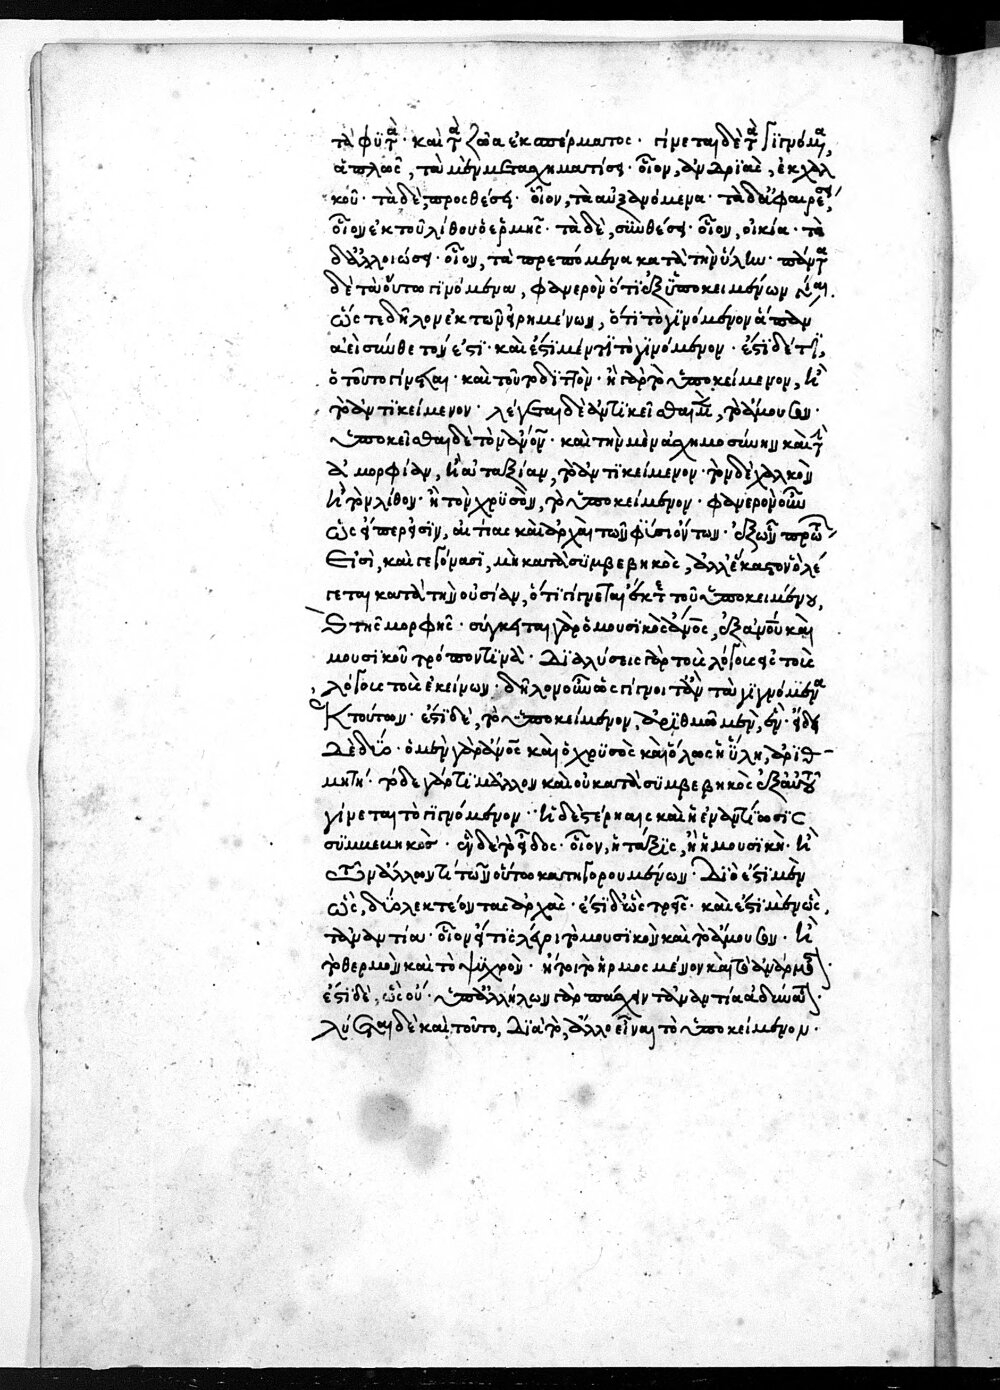 τὰ φυτὰ· καὶ τὰ ζῶα ἐκ σπέρματος· γίνεται δὲ τὰ γινόμενα,
ἁπλῶς, τὰ μὲν μετασχηματίσει· οἷον, ἀνδριὰς, ἐκ χαλ
κοῦ· τὰ δὲ, προσθέσει· οἷον, τὰ αὐξανόμενα· τὰ δ' ἀφαιρέσει,
οἷον ἐκ τοῦ λίθου ὁ ἑρμῆς· τὰ δὲ, συνθέσει· οἷον, οἰκία· τὰ
δ' ἀλλοιώσει· οἷον, τὰ τρεπόμενα κατὰ τὴν ὕλην· πάντα
δὲ τὰ οὕτω γινόμενα, φανερὸν ὅτι ἐξ ὑποκειμένων γίνεται.
ὥστε δῆλον ἐκ τῶν εἰρημένων, ὅτι τὸ γινόμενον ἅπαν
ἀεὶ σύνθετόν ἐστι· καὶ ἔστι μέν τι τὸ γινόμενον· ἔστι δέ τι,
ὃ τοῦτο γίνεται· καὶ τοῦτο διττόν· ἢ γὰρ τὸ ὑποκείμενον, ἢ
τὸ ἀντικείμενον· λέγεται δὲ ἀντικεῖσθαι μὲν, τὸ ἄμουσον·
ὑποκεῖσθαι δὲ τὸν ἄνθρωπον· καὶ τὴν μὲν ἀσχημοσύνην καὶ τὴν
ἀμορφίαν, ἢ ἀταξίαν, τὸ ἀντικείμενον· τὸν δὲ χαλκὸν
ἢ τὸν λίθον· ἢ τὸν χρυσὸν, τὸ ὑποκείμενον· φανερὸν οὖν
ὡς εἴπερ εἰσὶν, αἰτίαι καὶ ἀρχαὶ τῶν φύσει ὄντων· ἐξ ὧν πρώτων
εἰσὶ, καὶ γεγόνασι, μὴ κατὰ συμβεβηκὸς, ἀλλ' ἕκαστον ὃ λέ
γεται κατὰ τὴν οὐσίαν, ὅτι γίγνεται ἔκ τε τοῦ ὑποκειμένου,
καὶ τῆς μορφῆς· σύγκειται γὰρ ὁ μουσικὸς ἄνθρωπος, ἐξ ἀνθρώπου καὶ
μουσικοῦ τρόπον τινά· διαλύσεις γὰρ τοὺς λόγους εἰς τοὺς
λόγους τοὺς ἐκείνων· δῆλον οὖν ὡς γίγνοιτ' ἂν τὰ γιγνόμενα
ἐκ τούτων· ἔστι δὲ, τὸ ὑποκείμενον, ἀριθμῶ μὲν, ἕν· εἴδει
δὲ δύο· ὁ μὲν γὰρ ἄνθρωπος καὶ ὁ χρυσὸς καὶ ὅλως ἡ ὕλη, ἀριθ-
μητή· τόδε γάρ τι μᾶλλον καὶ οὐ κατὰ συμβεβηκὸς ἐξ αὐτοῦ
γίνεται τὸ γιγνόμενον· ἡ δὲ στέρησις καὶ ἡ ἐναντίωσις
συμβεβηκός· ἓν δὲ τὸ εἶδος· οἷον, ἡ τάξις, ἢ ἡ μουσική· ἢ
τῶν ἄλλων τι τῶν οὕτω κατηγορουμένων· διὸ ἔστι μὲν
ὡς, δύο λεκτέον τὰς ἀρχάς· ἔστι δ' ὡς τρεῖς· καὶ ἔστι μὲν ὡς,
τἀναντία· οἷον εἴ τις λέγοι τὸ μουσικὸν καὶ τὸ ἄμουσον· ἢ
τὸ θερμὸν καὶ τὸ ψυχρὸν· ἢ τοι τὸ ἡρμοσμένον καὶ τὸ ἀνάρμοστον·
ἔστι δὲ, ὡς οὔ· ὑπ' ἀλλήλων γὰρ πάσχειν τἀναντία ἀδύνατον·
λύεται δὲ καὶ τοῦτο, διὰ τὸ, ἄλλο εἶναι τὸ ὑποκείμενον·